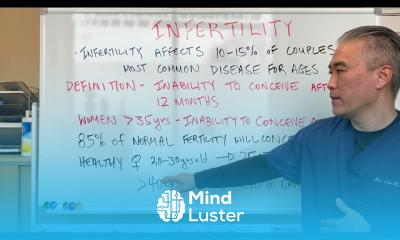 INFERTILITY
- INFERTILITY AFFECTS 10-15% OF COUPLES
MOST COMMON DISEASE FOR AGES
DEFINITION - INABILITY TO CONCEIVE AFT
12 MONTHS
WOMEN >35yrs - INABILITY TO CONCEIVE
85% OF NORMAL FERTILITY WILL CONC
HEALTHY ♀ 20-30yrs old →
Mind
Luster